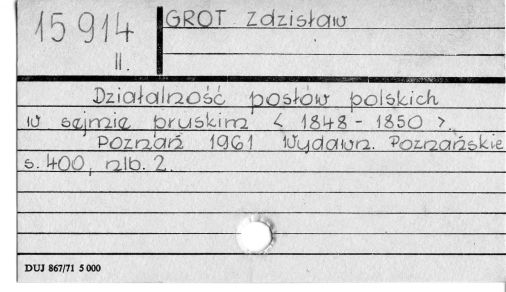 15 914
II.
GROT Zdzisław
Działalność posłów polskich
w sejmie pruskim < 1848 - 1850 >.
Poznań 1961 Wydawn. Poznańskie
s. 400, nlb. 2.
DUJ 867/71 5 000